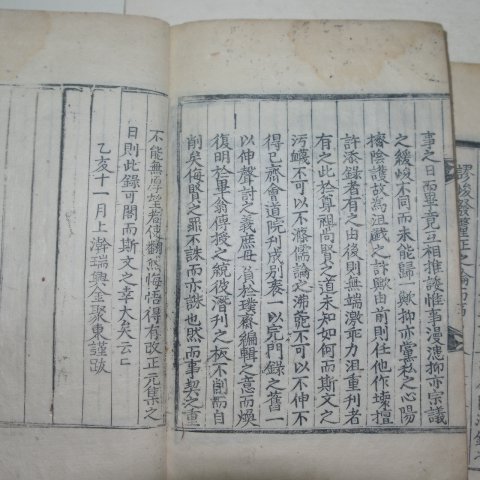 事之日而畢竟互相推諉惟事漫應抑亦宗議
之緩峻不同而未能歸一歟抑亦黨私之心陽
擠陰護故爲沮戱之計歟由前則任他作壞壇
許添錄者有之由後則無端激乖力沮重刊者
有之此於尊祖尚賢之道未知如何而斯文之
汚衊不可以不滌儒論之沸鬱不可以不伸不
得已齋會道院刊成別袠一以完門錄之舊一
以伸聲討之義庶毋負於璞齋編輯之意而煥
復明於畢翁傳授之統彼潛刊之板不削而自
削矣侮賢之罪不誅而亦誅也然而事契之重
不能無厚望若使飜然悔悟得有改正元集之
日則此錄可閣而斯文之幸大矣云爾
乙亥十一月上澣瑞興金聚東謹跋